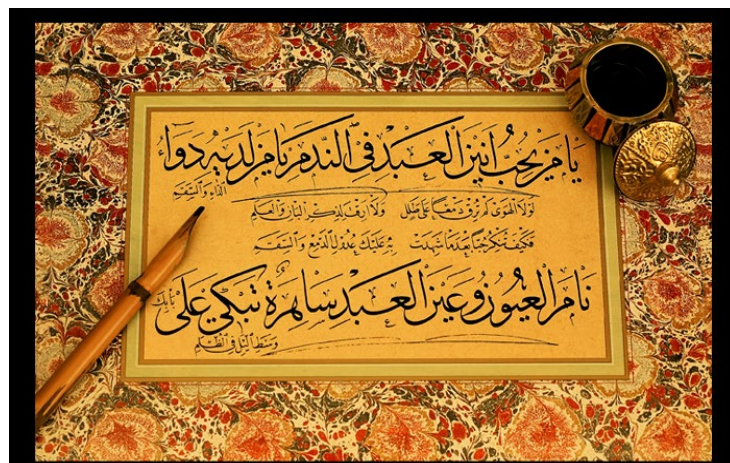 يَا مَنْ يُحِبُّ اَنِينَ الْعَبْدِ فِي النَّدَمِ يَا مَنْ لَدَيْهِ دَوَاءُ
الدَّاءِ وَالسَّقَمِ
لَوْلَا الْهَوَى لَمْ تُرِقْ دَمْعًا عَلَى طَلَلٍ وَلَا اَرِقْتَ لِذِكْرِ الْبَانِ وَالْعَلَمِ
فَكَيْفَ تُنْكِرُ حُبًّا بَعْدَمَا شَهِدَتْ بِهِ عَلَيْكَ عُدُولُ الدَّمْعِ وَالسَّقَمِ
نَامَ الْعُيُونُ وَعَيْنُ الْعَبْدِ سَاهِرَةٌ تَبْكِي عَلَى
بَابِكَ
وَسَطَ اللَّيْلِ فِي الظُّلَمِ